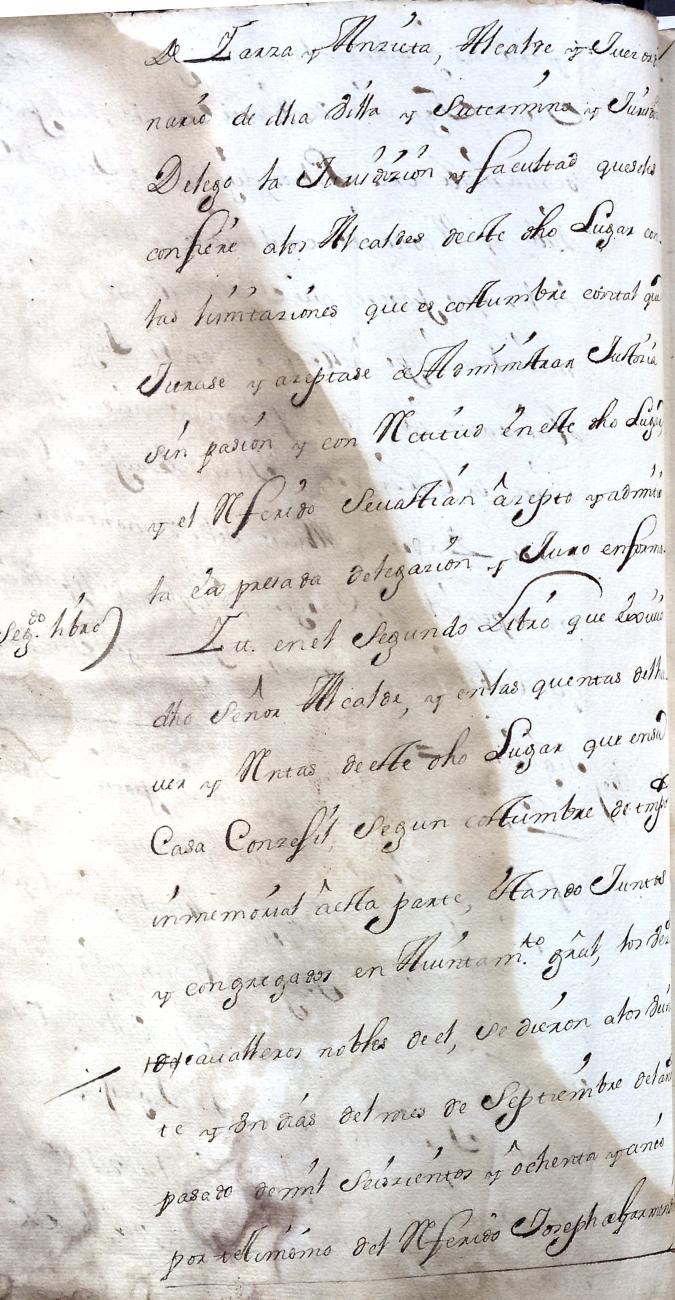 de Zarza y Anzueta, Alcalde y Juez ordi
nario de dha Villa y Su termino y Jurisd
Delego la Jurisdizion y facultad que se les
confiere alos Alcaldes de este dho Lugar con
las limitaziones que es costumbre con tal que
Jurase y azeptase de Administrar Justizia
sin pasion y con Rectitud en este dho Lugar,
y el Referido Sevastian âzepto y admitio
la expresada delegazion y Juro en forma.
Seg.do libro) Yu. en el Segundo Libro que exivio
dho Señor Alcalde, y en las quentas del ha
ver y Rentas de este dho Lugar que en su
Casa Conzejil, Segun costumbre de tmpo
inmemorial âesta parte, estando Juntos
y congregados en Aiuntam.to gral, los de
cavalleros nobles de el, se dieron alos vein
te y Un dias del mes de Septiembre del año
pasado de mil Seiszientos y ôchenta y cinco
por testimonio del Referido Joseph de Garmend